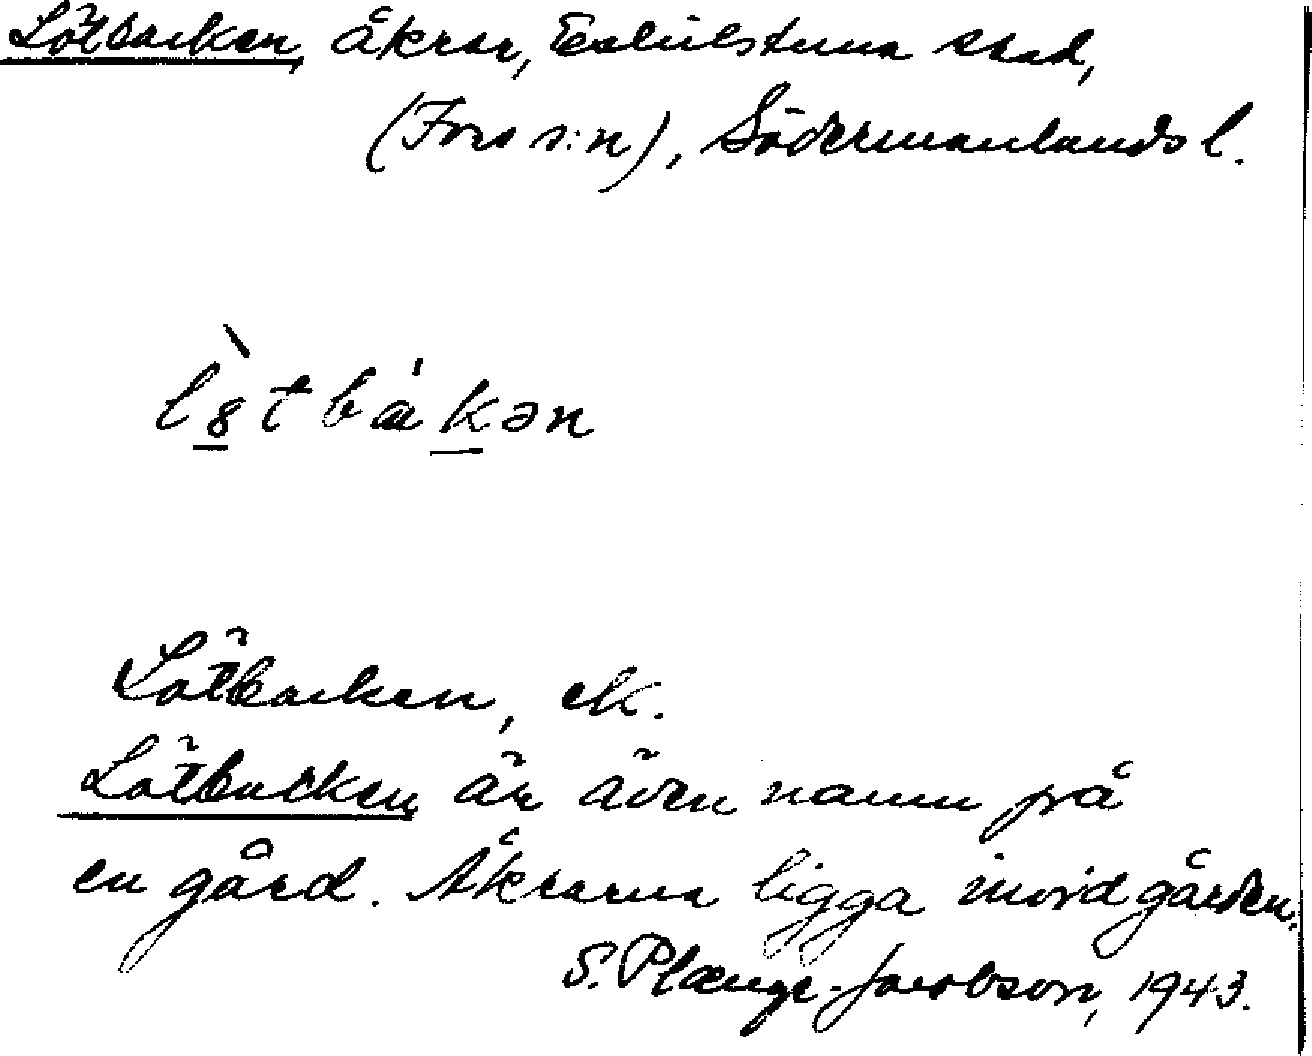 Lötbacken, åkrar, Eskilstuna stad,
(Fors s:n), Södermanlands l.
l8tbakən
Lötbacken, ek.
Lötbacken är även namn på
en gård. Åkrarna ligga invid gården.
S. Plænge-Jacobson, 1943.